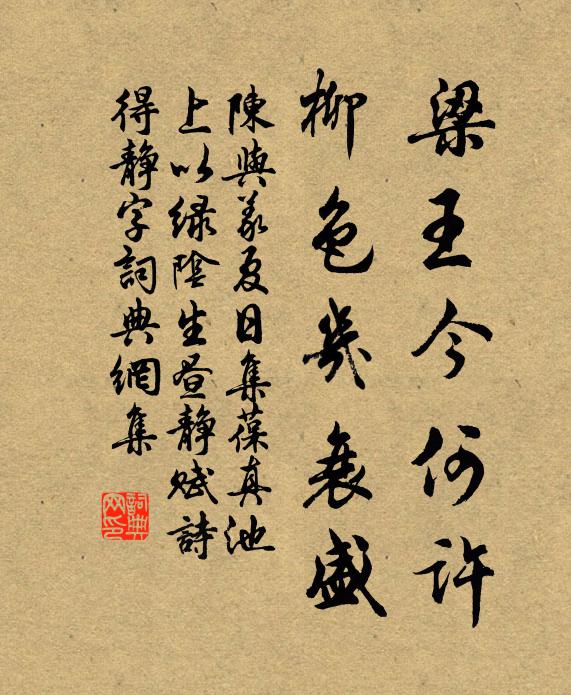 梁王今何许
柳色幾衰盛
陳與義夏日集葆真池
上以緑陰生昼静賦詩
得静字詞典網集
詞典
网印